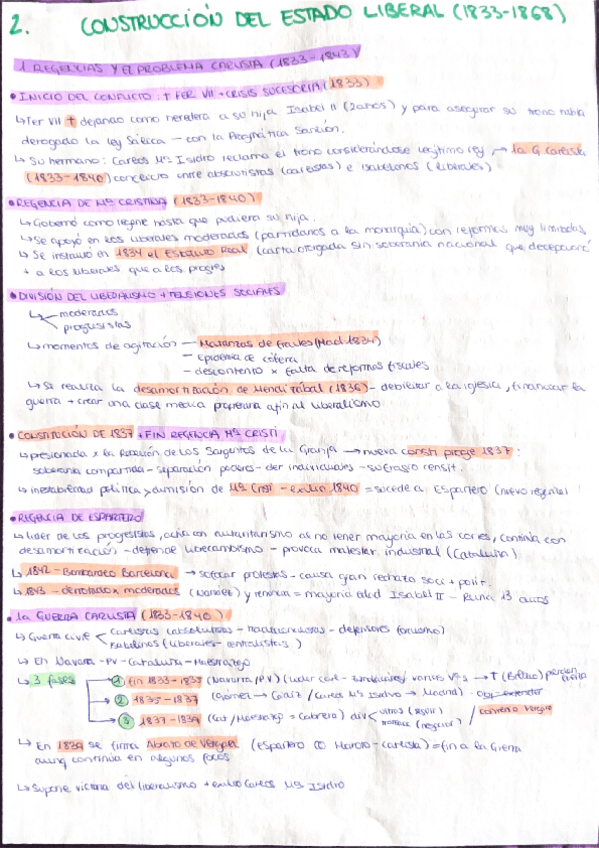 2. CONSTRUCCIÓN DEL ESTADO LIBERAL (1833-1868)
1 REGENCIAS Y EL PROBLEMA CARLISTA (1833-1843)
• INICIO DEL CONFLICTO: † FER VII + CRISIS SUCESORIA (1833)
↳ Fer VII † dejando como heredera a su hija Isabel II (2 años) y para asegurar su trono había
derogado la Ley Sálica — con la Pragmática Sanción.
↳ Su hermano: Carlos Mª Isidro reclama el trono considerándose legítimo rey, → 1a G Carlista
(1833-1840) conflicto entre absolutistas (carlistas) e isabelinos (liberales)
• REGENCIA DE Mª CRISTINA (1833-1840)
↳ Gobernó como regente hasta que pudiera su hija.
↳ Se apoyó en los liberales moderados (partidarios a la monarquía) con reformas muy limitadas
↳ Se instauró en 1834 el Estatuto Real (carta otorgada sin soberanía nacional que decepcionó
+ a los liberales que a los progres
• DIVISIÓN DEL LIBERALISMO + TENSIONES SOCIALES
↳ moderados
progresistas
↳ momentos de agitación — Matanzas de frailes (Mad. 1834)
— Epidemia de cólera
— descontento x falta de reformas fiscales
↳ Se realiza la desamortización de Mendizábal (1836) - debilitar a la iglesia, financiar la
guerra + crear una clase media propietaria afín al liberalismo
• CONSTITUCIÓN DE 1837 + FIN REGENCIA Mª CRISTI
↳ presionada x la Rebelión de los Sargentos de la Granja → nueva consti progre 1837:
soberanía compartida - separación poderes - der individuales - sufragio censit.
↳ inestabilidad política y dimisión de Mª Cristi - exilio 1840 = sucede a Espartero (nuevo regente)
• REGENCIA DE ESPARTERO
↳ líder de los progresistas, actúa con autoritarismo al no tener mayoría en las cortes, continúa con
desamortización - defiende librecambismo - provoca malestar industrial (Cataluña)
↳ 1842 - Bombardeo Barcelona → sofocar protestas - causa gran rechazo soci + polít.
↳ 1843 - derrotado x moderados (Narváez) y renuncia = mayoría edad Isabel II - Reina 13 años
• 1a GUERRA CARLISTA (1833-1840)
↳ Guerra civil < carlistas (absolutistas - tradicionalistas - defensores foralismo)
isabelinos (liberales - centralistas)
↳ En Navarra - PV - Cataluña - Maestrazgo
↳ 3 fases → 1 fin 1833-1835 (Navarra/PV) (líder carl - Zumalacárregui) varias Vªs → † (Bilbao)
→ 2 1835-1837 (Gómez → Cádiz / Carlos Mª Isidro → Madrid)
→ 3 1837-1839 (Cat/Maestrazgo = Cabrera) div < / convenio Vergara
↳ En 1839 se firma Abrazo de Vergara (Espartero Maroto - carlista) = fin a la Guerra
aunq continúa en algunos focos
↳ Supone victoria del liberalismo + exilio Carlos Mª Isidro